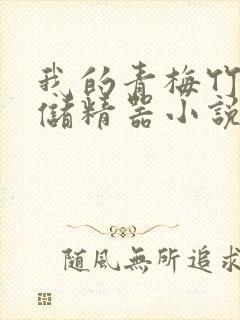 我的青梅竹
儲精器小說
随風無所追求